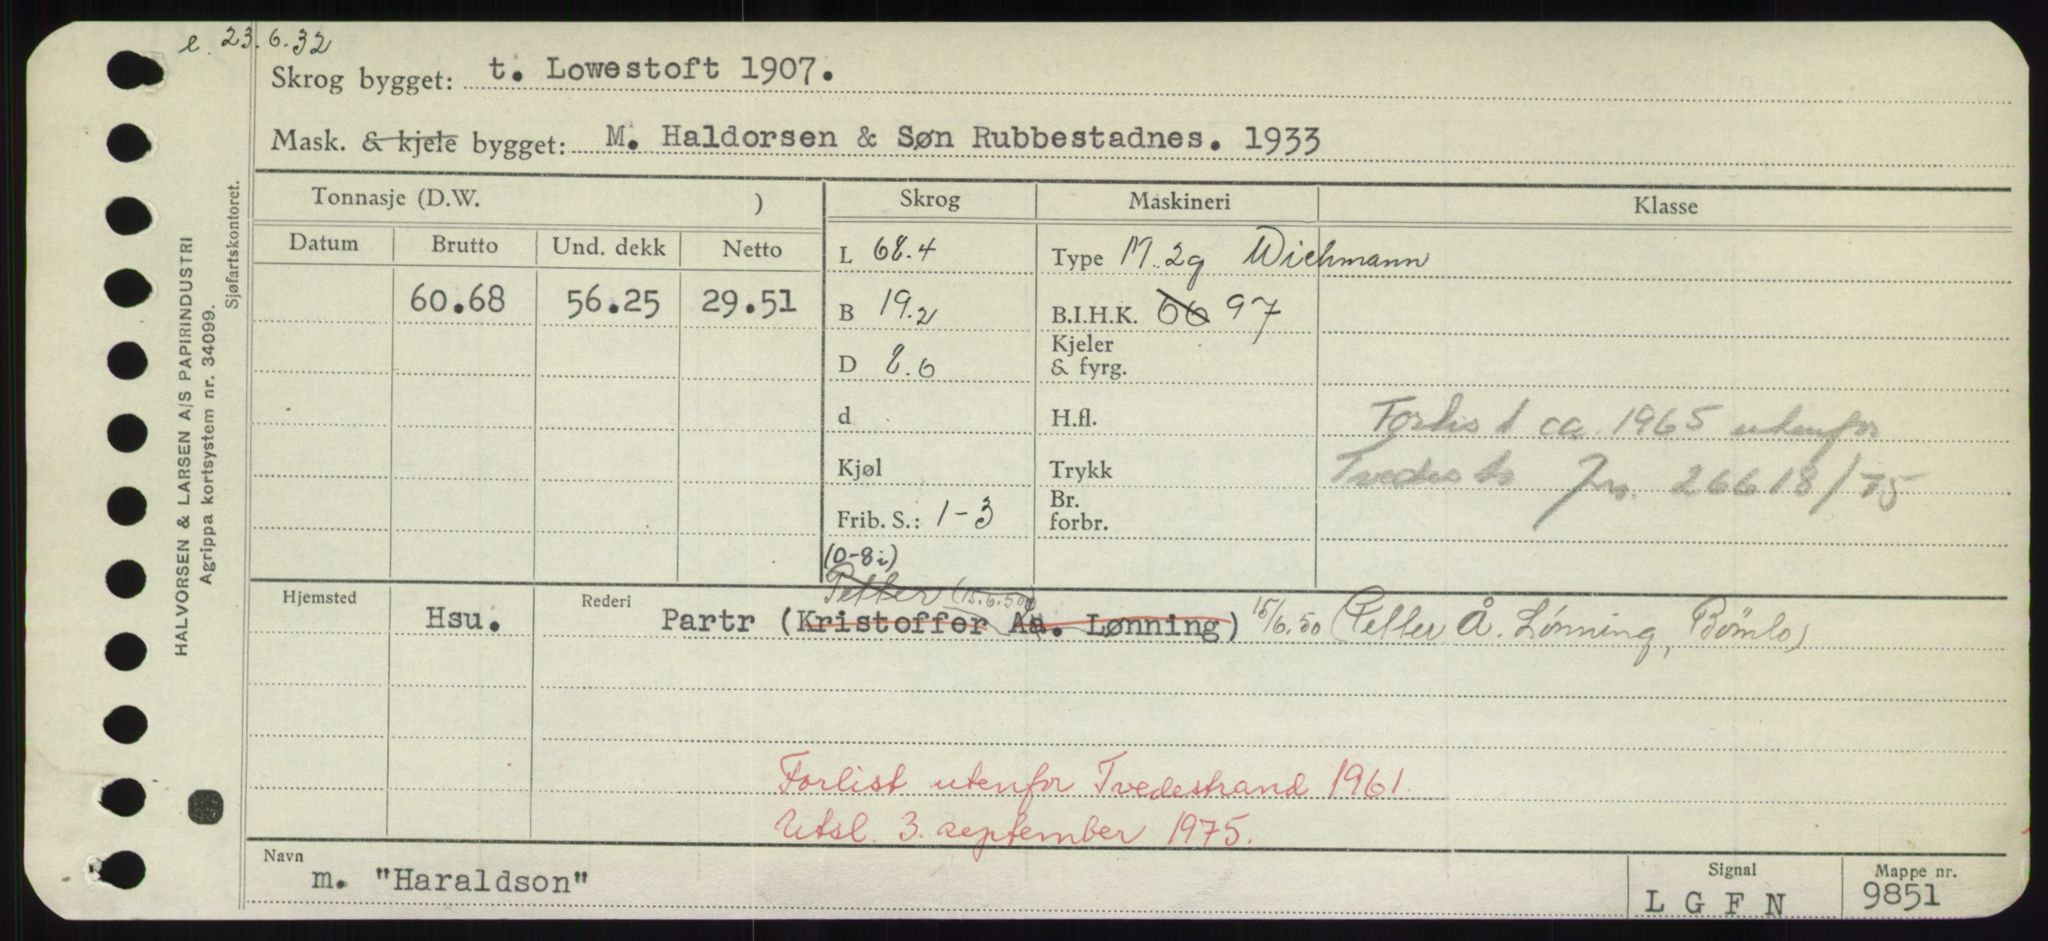 e. 23.6.32
Skrog bygget: t. Lowestoft 1907.
Mask. & kjele bygget: M. Haldorsen & Søn Rubbestadnes. 1933
Tonnasje (D.W. ) Skrog Maskineri Klasse
Datum Brutto Und. dekk Netto L 68.4 Type M. 2g Wichmann
60.68 56.25 29.51 B 19.2 B.I.H.K. 66 97
Kjeler
D 8.6 & fyrg.
d H.fl. Forlist ca. 1965 utenfor
Kjøl Trykk Tvedestr. Jnr. 26618/75
Br.
Frib. S.: 1-3 forbr.
(0-8i)
Petter (15.6.50)
Hjemsted Hsu. Rederi Partr (Kristoffer Aa. Lønning) 15/6.50 (Petter Å. Lønning, Bömlo)
Forlist utenfor Tvedestrand 1961.
Utsl. 3. september 1975.
Navn m. "Haraldson" Signal L G F N Mappe nr. 9851
HALVORSEN & LARSEN A/S PAPIRINDUSTRI
Agrippa kortsystem nr. 34099.
Sjøfartskontoret.